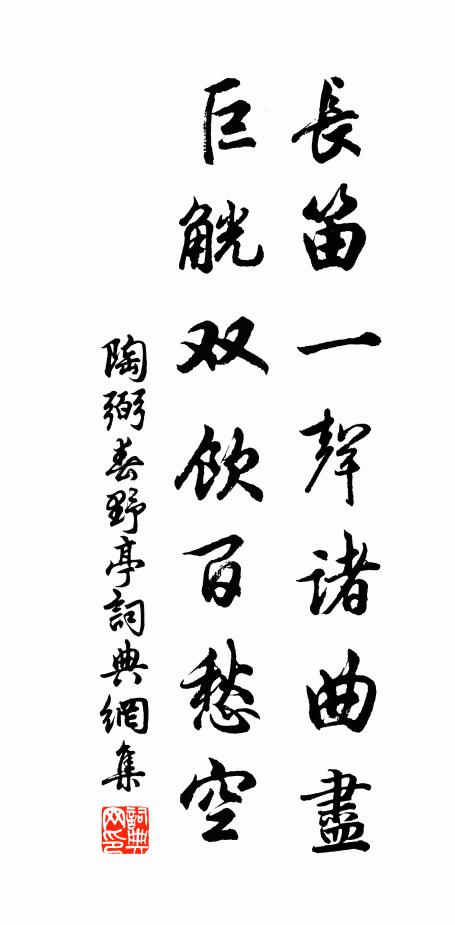 長笛一聲諸曲盡
巨觥双飲百愁空
陶弼春野亭詞典網集
詞典网印